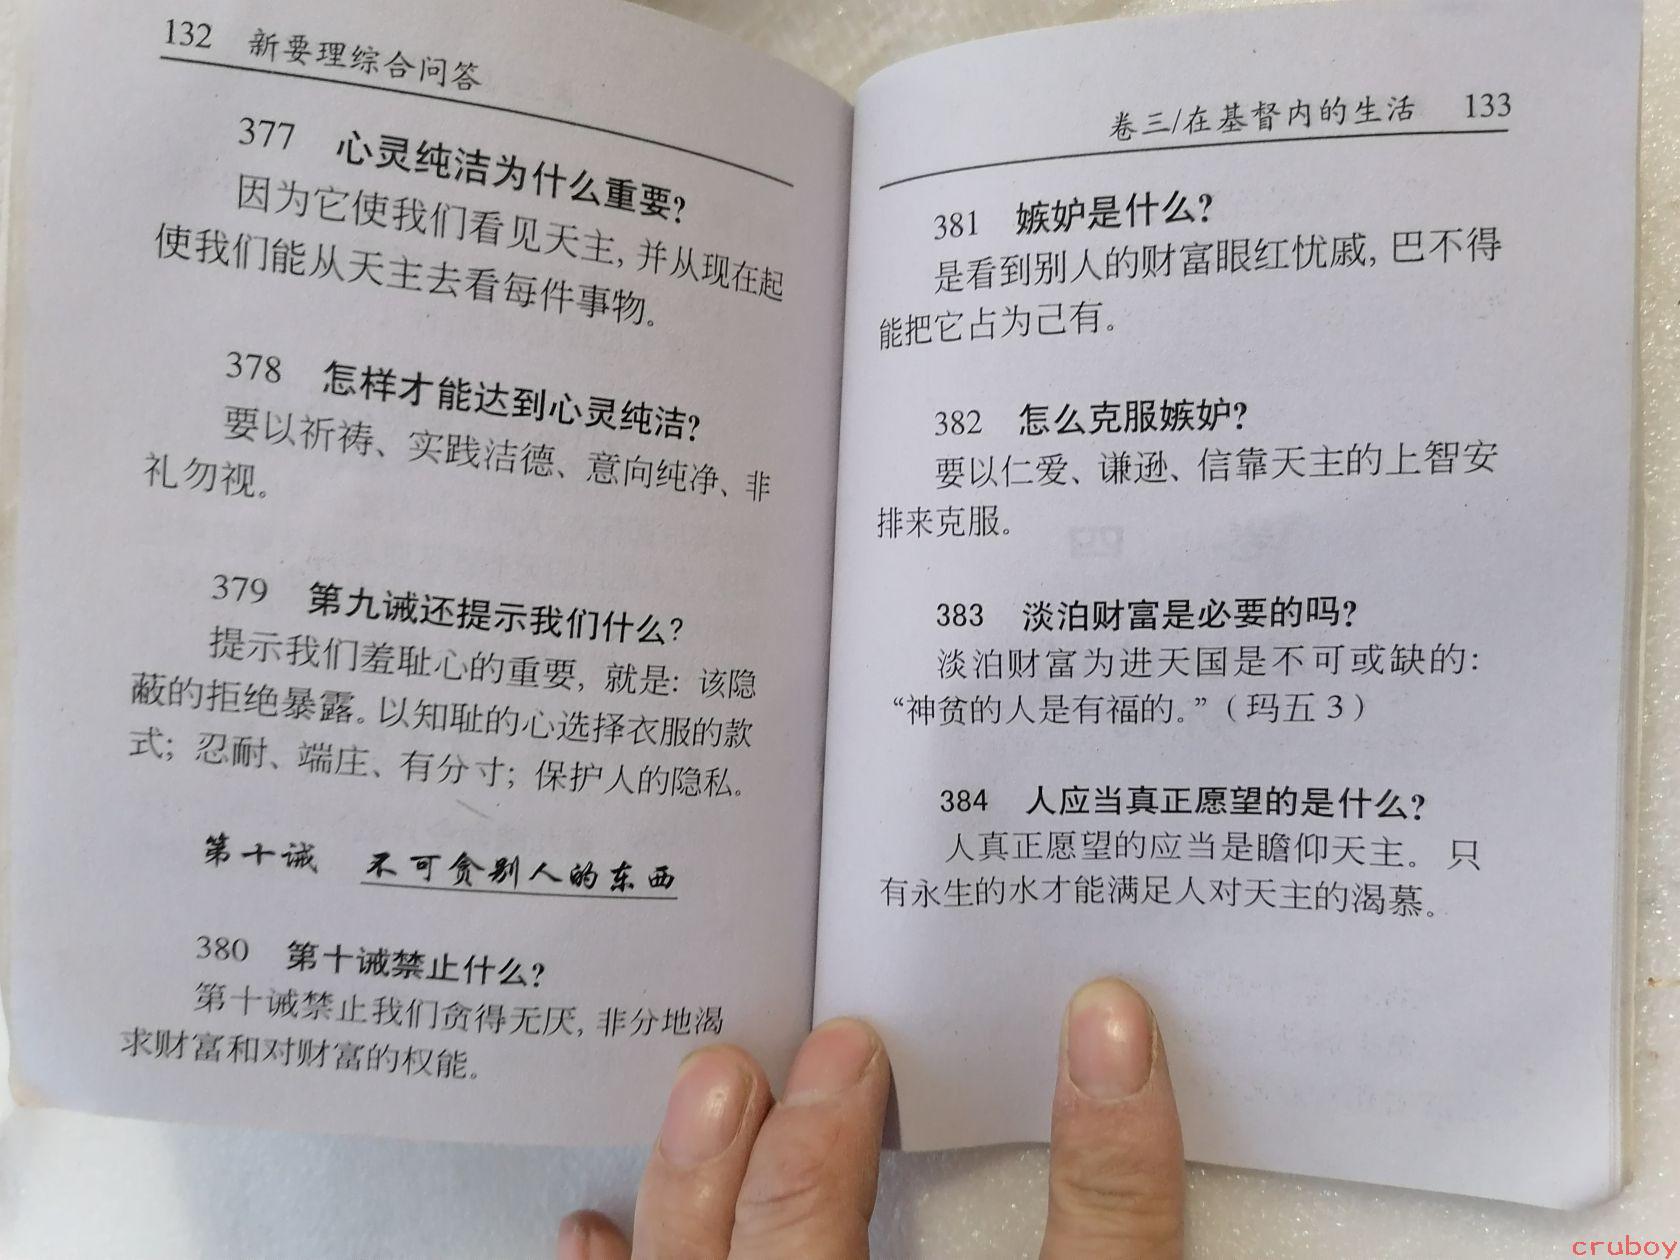 132 新要理综合问答
377 心灵纯洁为什么重要?
因为它使我们看见天主, 并从现在起
使我们能从天主去看每件事物。
378 怎样才能达到心灵纯洁?
要以祈祷、实践洁德、意向纯净、非
礼勿视。
379 第九诫还提示我们什么?
提示我们羞耻心的重要, 就是: 该隐
蔽的拒绝暴露。以知耻的心选择衣服的款
式; 忍耐、端庄、有分寸; 保护人的隐私。
第十诫 不可贪别人的东西
380 第十诫禁止什么?
第十诫禁止我们贪得无厌, 非分地渴
求财富和对财富的权能。
卷三/在基督内的生活 133
381 嫉妒是什么?
是看到别人的财富眼红忧戚, 巴不得
能把它占为己有。
382 怎么克服嫉妒?
要以仁爱、谦逊、信靠天主的上智安
排来克服。
383 淡泊财富是必要的吗?
淡泊财富为进天国是不可或缺的:
“神贫的人是有福的。”(玛五3)
384 人应当真正愿望的是什么?
人真正愿望的应当是瞻仰天主。只
有永生的水才能满足人对天主的渴慕。
cruboy